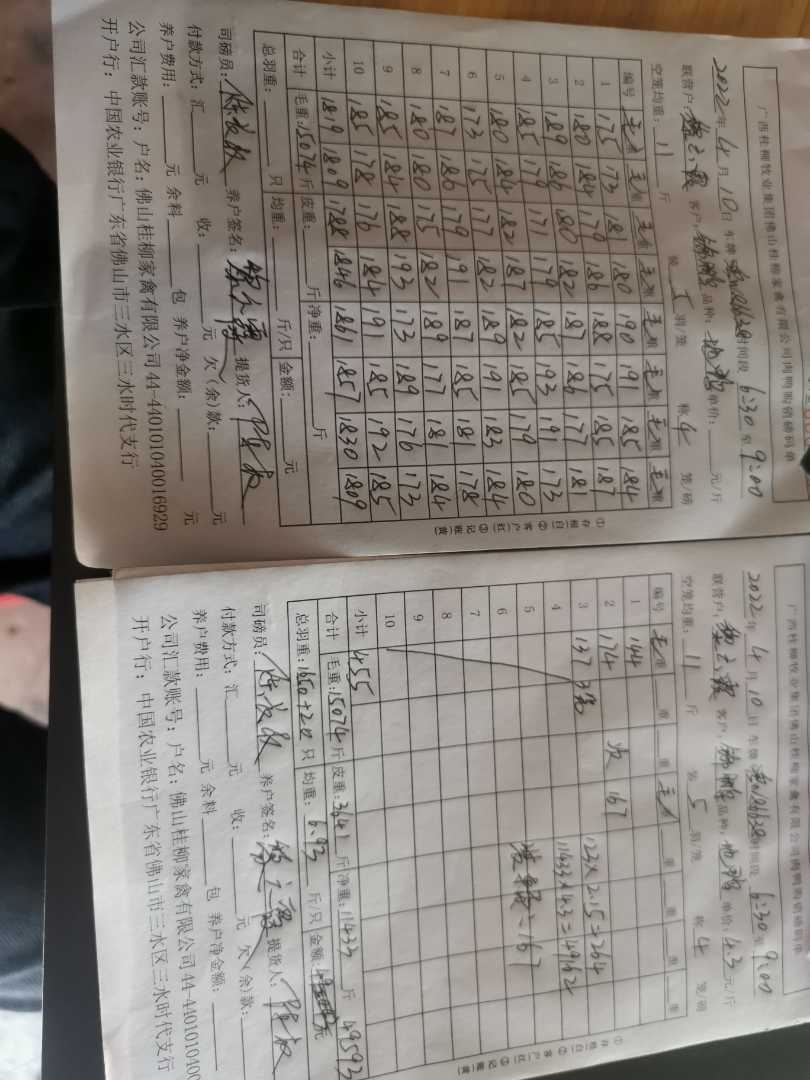 广西桂柳牧业集团佛山桂柳家禽有限公司肉鸭购销磅单
2022年 4月 10日 车牌: 时间段 6:30 至 9:00
联营户: 客户: 品种: 单价: 元/斤
空笼均重: 11 斤 装 5 羽/笼 称 4 笼/磅
编号 毛重 毛重 毛重 毛重 毛重 毛重 毛重 毛重
1 175 173 181 180 190 191 185 184
2 180 184 179 186 188 175 185 187
3 189 186 180 182 187 186 177 181
4 185 179 171 179 185 193 191 173
5 180 184 182 187 182 185 179 180
6 173 175 177 182 189 191 183 184
7 187 186 179 191 187 185 181 178
8 180 180 175 182 189 177 181 184
9 185 184 188 193 173 189 176 173
10 185 178 176 184 191 185 192 185
小计 1819 1809 1788 1846 1861 1857 1830 1809
合计 毛重: 15074 斤 皮重: 斤 净重: 斤
总羽重: 只 均重: 斤/只 金额: 元
司磅员: 养户签名: 提货人:
付款方式: 汇 元 收: 元 欠(余)款: 元
养户费用: 元 余料 包 养户净金额: 元
公司汇款账号: 户名: 佛山桂柳家禽有限公司 44-440101040016929
开户行: 中国农业银行广东省佛山市三水区三水时代支行
①存根(白) ②客户(红) ③记账(黄)
广西桂柳牧业集团佛山桂柳家禽有限公司肉鸭购销磅单
2022年 4月 10日 车牌 时间段 6:30 至 9:00
联营户: 客户: 品种: 单价: 4.3 元/斤
空笼均重: 11 斤 装 5 羽/笼 称 4 笼/磅
编号 毛重 重 重 重 重 重 重
1 144
2 174 167
3 137 123×2.15=264
4 11433×4.3=49162
5 =167
6
7
8
9
10
小计 455
合计 毛重: 15074 斤 皮重: 3641 斤 净重: 11433 斤 49593
总羽重: 1650+20 只 均重: 6.93 斤/只 金额
司磅员: 养户签名: 提货人:
付款方式: 汇 元 收: 元 欠(余)款:
养户费用: 元 余料 包 养户净金额:
公司汇款账号: 户名: 佛山桂柳家禽有限公司 44-440101040
开户行: 中国农业银行广东省佛山市三水区三水时代支行
①存根(白) ②客户(红) ③记账(黄)